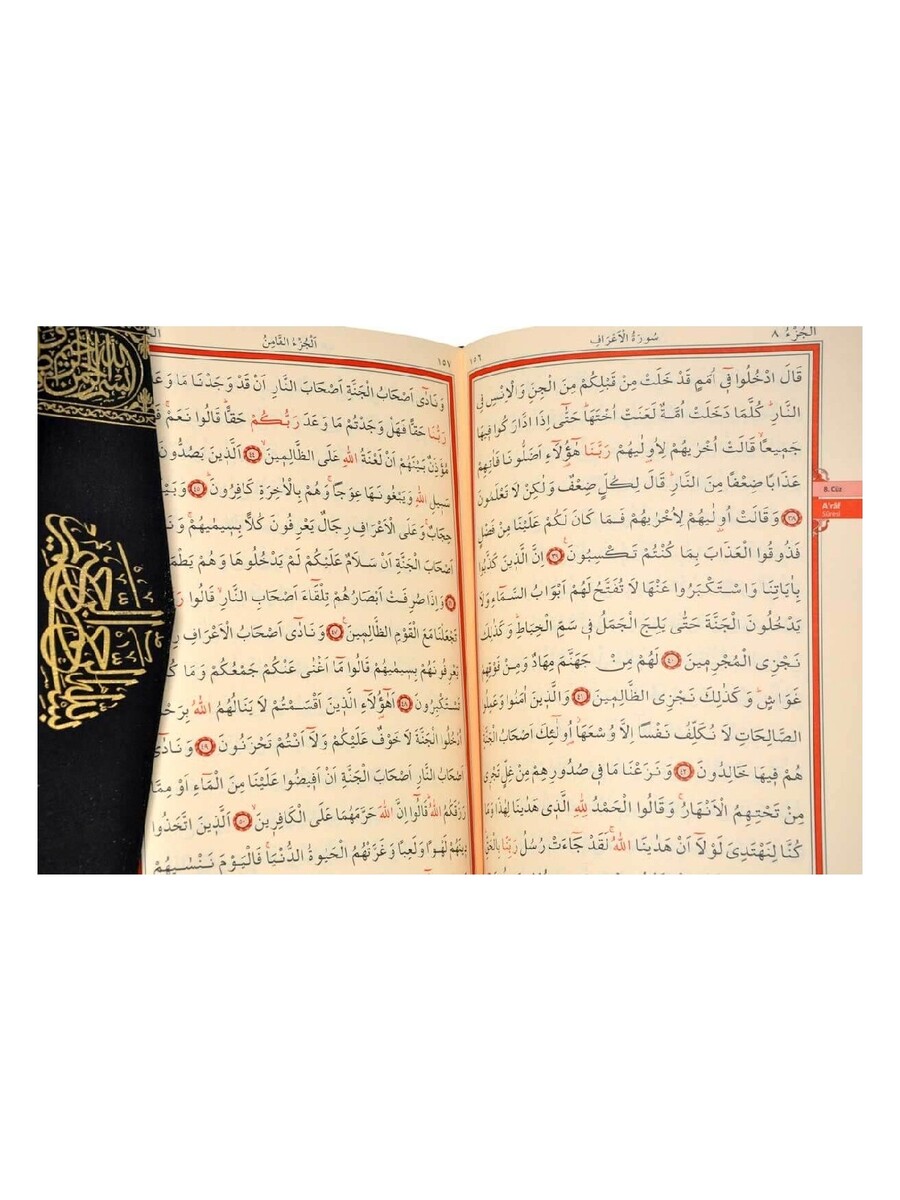 الجزء ٨
سورة الاعراف
١٥٦
قَالَ ادْخُلُوا فٓى اُمَمٍ قَدْ خَلَتْ مِنْ قَبْلِكُمْ مِنَ الْجِنِّ وَالْاِنْسِ فِى
النَّارِ كُلَّمَا دَخَلَتْ اُمَّةٌ لَعَنَتْ اُخْتَهَا حَتّٰٓى اِذَا ادَّارَكُوا فٖيهَا
جَمٖيعًا قَالَتْ اُخْرٰيهُمْ لِاُولٰيهُمْ رَبَّنَا هٰٓؤُلَٓاءِ اَضَلُّونَا فَاٰتِهِمْ
عَذَابًا ضِعْفًا مِنَ النَّارِ قَالَ لِكُلٍّ ضِعْفٌ وَلٰكِنْ لَا تَعْلَمُونَ
٣٨ وَقَالَتْ اُولٰيهُمْ لِاُخْرٰيهُمْ فَمَا كَانَ لَكُمْ عَلَيْنَا مِنْ فَضْلٍ
فَذُوقُوا الْعَذَابَ بِمَا كُنْتُمْ تَكْسِبُونَ ٣٩ اِنَّ الَّذٖينَ كَذَّبُوا
بِاٰيَاتِنَا وَاسْتَكْبَرُوا عَنْهَا لَا تُفَتَّحُ لَهُمْ اَبْوَابُ السَّمَٓاءِ وَلَا
يَدْخُلُونَ الْجَنَّةَ حَتّٰى يَلِجَ الْجَمَلُ فٖى سَمِّ الْخِيَاطِ وَكَذٰلِكَ
نَجْزِى الْمُجْرِمٖينَ ٤٠ لَهُمْ مِنْ جَهَنَّمَ مِهَادٌ وَمِنْ فَوْقِهِمْ
غَوَاشٍ وَكَذٰلِكَ نَجْزِى الظَّالِمٖينَ ٤١ وَالَّذٖينَ اٰمَنُوا وَعَمِلُوا
الصَّالِحَاتِ لَا نُكَلِّفُ نَفْسًا اِلَّا وُسْعَهَا اُولٰٓئِكَ اَصْحَابُ الْجَنَّةِ
هُمْ فٖيهَا خَالِدُونَ ٤٢ وَنَزَعْنَا مَا فٖى صُدُورِهِمْ مِنْ غِلٍّ تَجْرٖى
مِنْ تَحْتِهِمُ الْاَنْهَارُ وَقَالُوا الْحَمْدُ لِلّٰهِ الَّذٖى هَدٰينَا لِهٰذَا وَمَا
كُنَّا لِنَهْتَدِىَ لَوْلَٓا اَنْ هَدٰينَا اللّٰهُ لَقَدْ جَٓاءَتْ رُسُلُ رَبِّنَا بِالْحَقِّ
8. Cüz
A'râf
Sûresi
اَلْجُزْءُ الثَّامِنُ
١٥٧
وَنَادٰٓى اَصْحَابُ الْجَنَّةِ اَصْحَابَ النَّارِ اَنْ قَدْ وَجَدْنَا مَا وَعَدَ
رَبُّنَا حَقًّا فَهَلْ وَجَدْتُمْ مَا وَعَدَ رَبُّكُمْ حَقًّا قَالُوا نَعَمْ
مُؤَذِّنٌ بَيْنَهُمْ اَنْ لَعْنَةُ اللّٰهِ عَلَى الظَّالِمٖينَ ٤٤ اَلَّذٖينَ يَصُدُّونَ
سَبٖيلِ اللّٰهِ وَيَبْغُونَهَا عِوَجًا وَهُمْ بِالْاٰخِرَةِ كَافِرُونَ ٤٥ وَبَيْنَ
حِجَابٌ وَعَلَى الْاَعْرَافِ رِجَالٌ يَعْرِفُونَ كُلًّا بِسٖيمٰيهُمْ
اَصْحَابَ الْجَنَّةِ اَنْ سَلَامٌ عَلَيْكُمْ لَمْ يَدْخُلُوهَا وَهُمْ
وَاِذَا صُرِفَتْ اَبْصَارُهُمْ تِلْقَٓاءَ اَصْحَابِ النَّارِ قَالُوا
تَجْعَلْنَا مَعَ الْقَوْمِ الظَّالِمٖينَ ٤٧ وَنَادٰٓى اَصْحَابُ الْاَعْرَافِ
يَعْرِفُونَهُمْ بِسٖيمٰيهُمْ قَالُوا مَٓا اَغْنٰى عَنْكُمْ جَمْعُكُمْ وَمَا
تَسْتَكْبِرُونَ ٤٨ اَهٰٓؤُلَٓاءِ الَّذٖينَ اَقْسَمْتُمْ لَا يَنَالُهُمُ اللّٰهُ
اُدْخُلُوا الْجَنَّةَ لَا خَوْفٌ عَلَيْكُمْ وَلَٓا اَنْتُمْ تَحْزَنُونَ ٤٩ وَنَادٰٓى
اَصْحَابُ النَّارِ اَصْحَابَ الْجَنَّةِ اَنْ اَفٖيضُوا عَلَيْنَا مِنَ الْمَٓاءِ اَوْ مِمَّا
رَزَقَكُمُ اللّٰهُ قَالُٓوا اِنَّ اللّٰهَ حَرَّمَهُمَا عَلَى الْكَافِرٖينَ ٥٠ اَلَّذٖينَ اتَّخَذُوا
دٖينَهُمْ لَهْوًا وَلَعِبًا وَغَرَّتْهُمُ الْحَيٰوةُ الدُّنْيَا فَالْيَوْمَ نَنْسٰيهُمْ